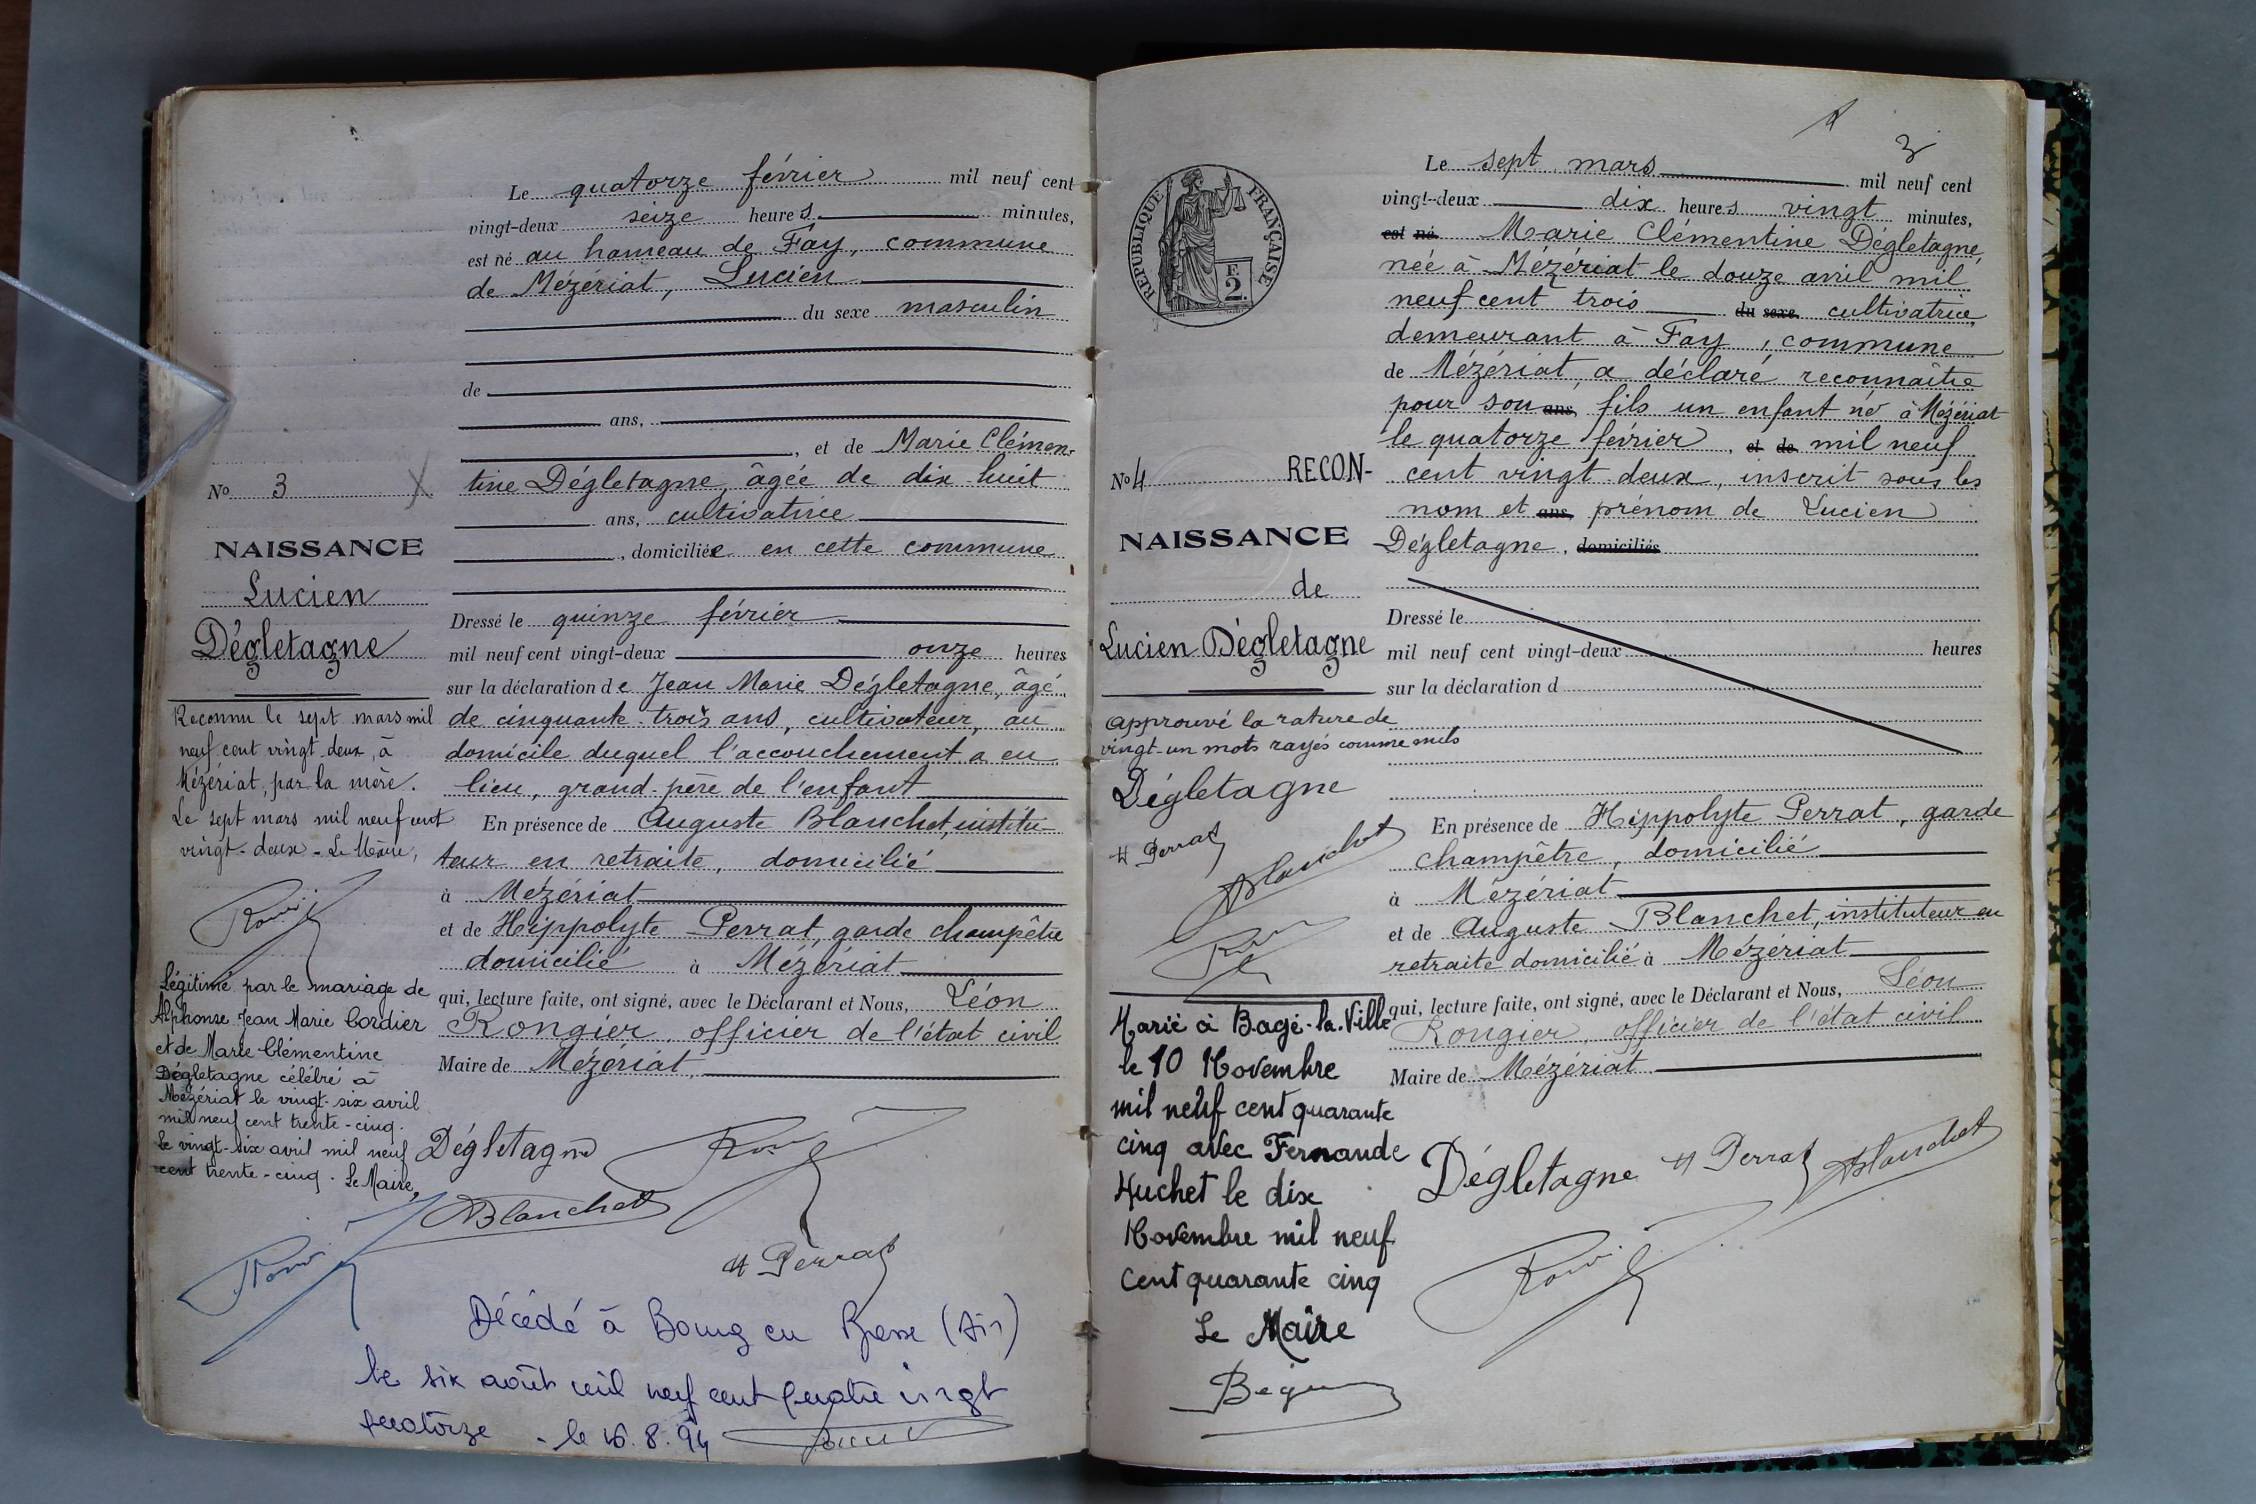 Le quatorze février mil neuf cent
vingt-deux seize heures minutes,
est né au hameau de Fay, commune
de Mézériat, Lucien
du sexe masculin
de
ans,
, et de Marie Clémen-
tine Dégletagne, âgée de dix huit
ans, cultivatrice
, domiciliée en cette commune
Dressé le quinze février
mil neuf cent vingt-deux onze heures
sur la déclaration de Jean Marie Dégletagne, âgé
de cinquante-trois ans, cultivateur, au
domicile duquel l'accouchement a eu
lieu, grand-père de l'enfant
En présence de Auguste Blanchet, institu-
teur en retraite, domicilié
à Mézériat
et de Hippolyte Perrat, garde champêtre
domicilié à Mézériat
qui, lecture faite, ont signé, avec le Déclarant et Nous, Léon
Rongier, officier de l'état civil
Maire de Mézériat.
Dégletagne
Blanchet
H Perrat
Décédé à Bourg en Bresse (Ain)
le six août mil neuf cent quatre vingt
quatorze - le 16.8.94
No 3
NAISSANCE
Lucien
Dégletagne
Reconnu le sept mars mil
neuf cent vingt-deux, à
Mézériat, par la mère.
Le sept mars mil neuf cent
vingt-deux - Le Maire,
Légitimé par le mariage de
Alphonse Jean Marie Cordier
et de Marie Clémentine
Dégletagne célébré à
Mézériat le vingt-six avril
mil neuf cent trente-cinq.
Le vingt-six avril mil neuf
cent trente-cinq. Le Maire,
3
RÉPUBLIQUE FRANÇAISE
F.
2.
Le sept mars mil neuf cent
vingt-deux dix heures vingt minutes,
est né Marie Clémentine Dégletagne,
née à Mézériat le douze avril mil
neuf cent trois du sexe cultivatrice,
demeurant à Fay, commune
de Mézériat, a déclaré reconnaître
pour son ans, fils un enfant né à Mézériat
le quatorze février, et de mil neuf
cent vingt deux, inscrit sous les
nom et ans, prénom de Lucien
Dégletagne, domiciliés
Dressé le
mil neuf cent vingt-deux heures
sur la déclaration d
En présence de Hippolyte Perrat, garde
champêtre, domicilié
à Mézériat
et de Auguste Blanchet, instituteur en
retraite domicilié à Mézériat
qui, lecture faite, ont signé, avec le Déclarant et Nous, Léon
Rongier, officier de l'état civil
Maire de Mézériat
Dégletagne H Perrat Blanchet
No 4 RECON-
NAISSANCE
de
Lucien Dégletagne
approuvé la rature de
vingt-un mots rayés comme nuls
Dégletagne
H Perrat
Blanchet
Marié à Bagé-la-Ville
le 10 Novembre
mil neuf cent quarante
cinq avec Fernande
Huchet le dix
Novembre mil neuf
cent quarante cinq
Le Maire